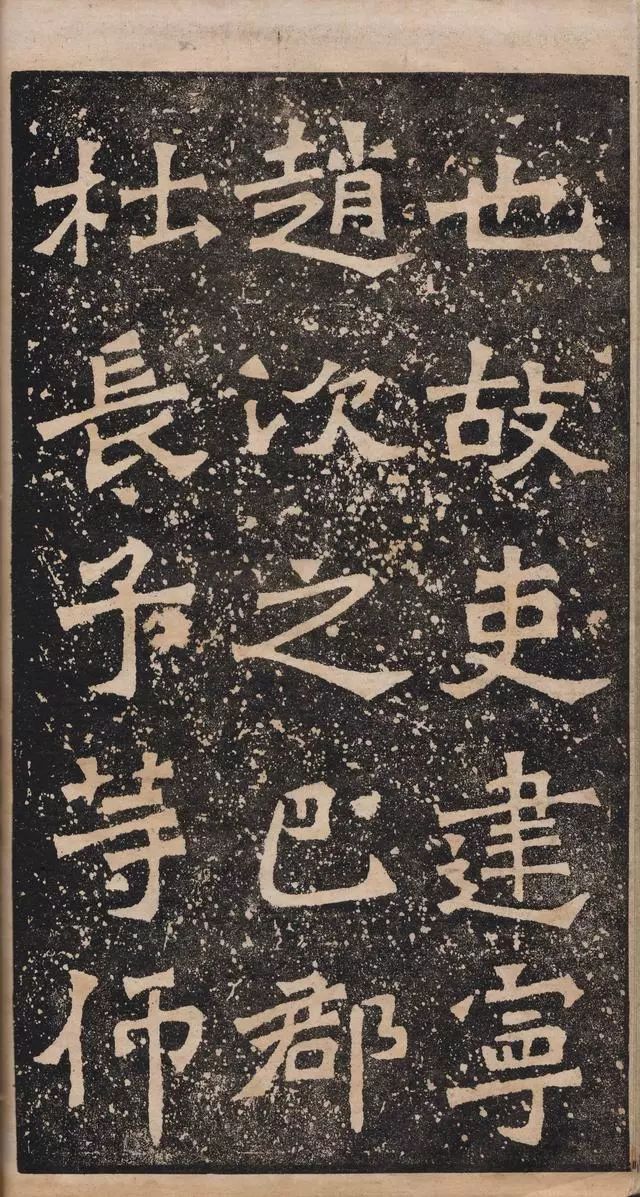 也故吏建寧
趙次之巴郡
杜長子等師